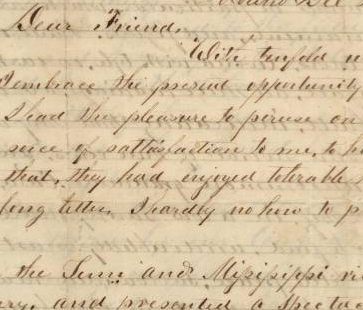 Dear Friend,
With tenfold
embrace the present opportunity
I had the pleasure to peruse on
of sattasfaction to me, to
that, they had enjoyed tolerable
long letter, I hardly no how to
the Tenn and Missisippi
and presented a